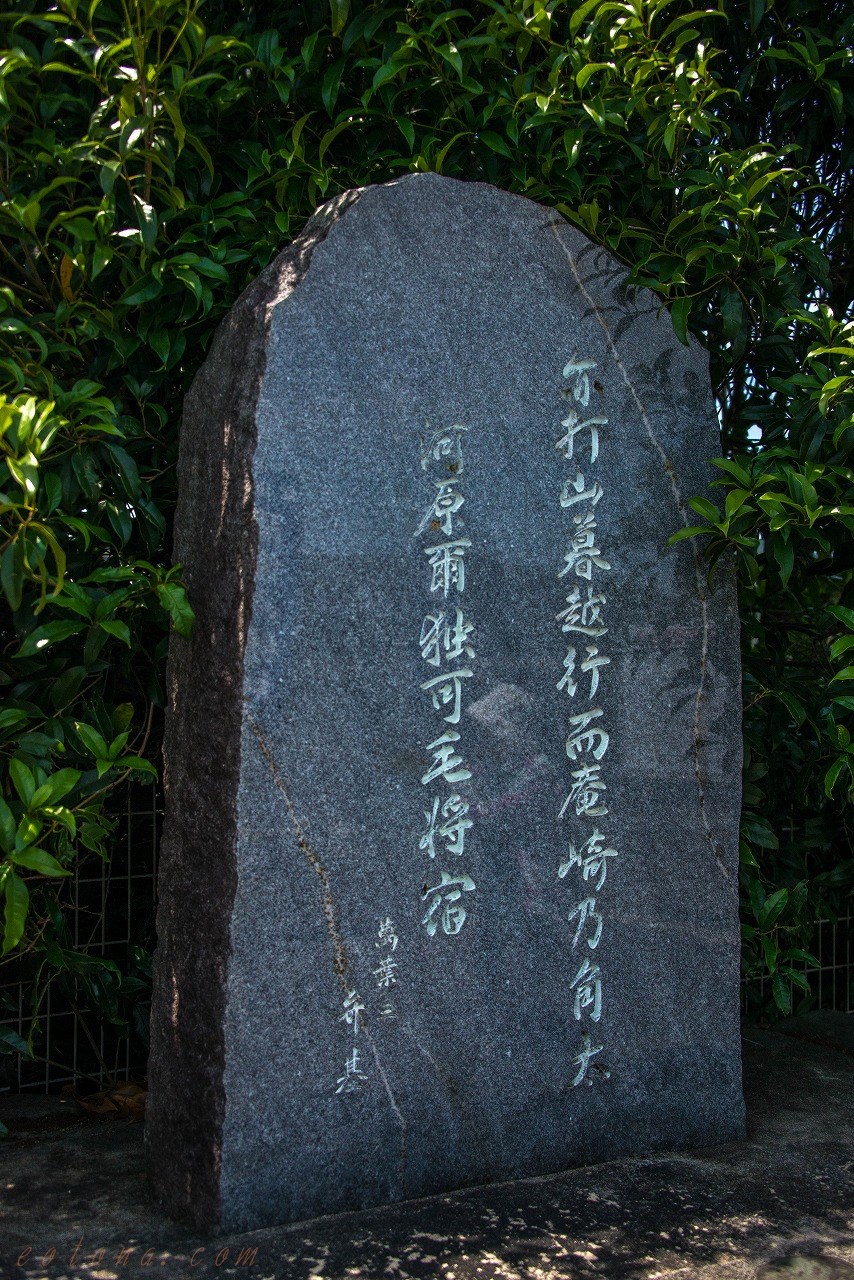 亦打山暮越行而庵崎乃角太
河原爾独可毛将宿
萬葉三
弁基
eotona.com